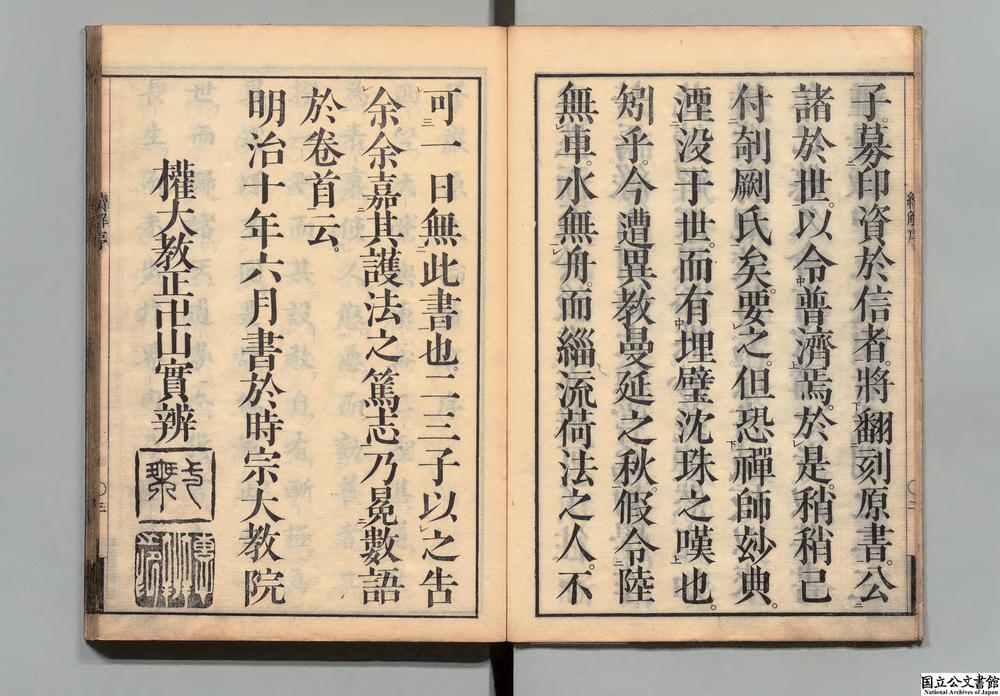 子。募印資於信者。將翻刻原書。公
諸於世。以令普濟焉。於是。稍稍已
付剞劂氏矣。要之。但恐禪師玅典。
湮没于世。而有埋璧沈珠之嘆也。
矧乎。今遭異教曼延之秋。假令陸
無車。水無舟。而緇流荷法之人。不
可一日無此書也。二三子以之告
余。余嘉其護法之篤志。乃冕數語
於卷首云。
明治十年六月書於時宗大教院
權大教正卍山實辨
國立公文書館
National Archives of Japan